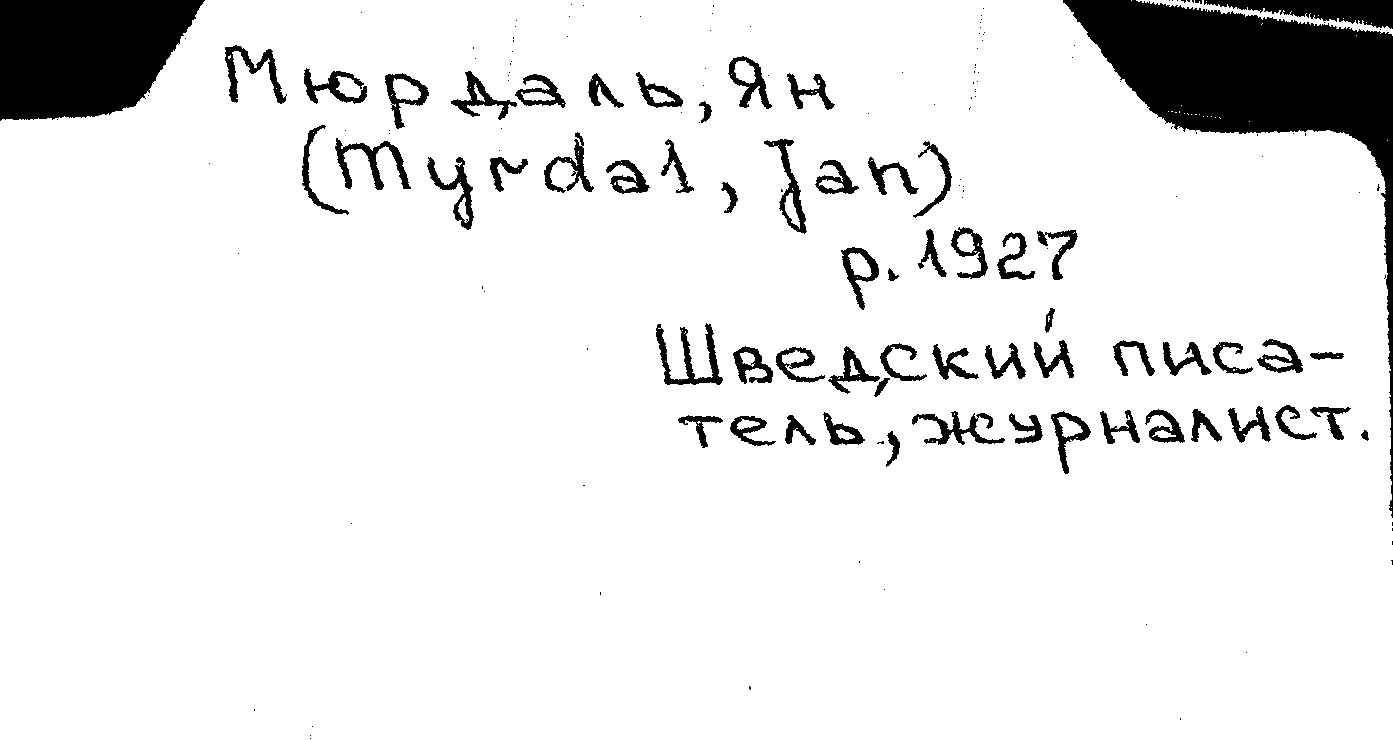 Мюрдаль, Ян
(Myrdal, Jan)
р. 1927
Шведский писа-
тель, журналист.